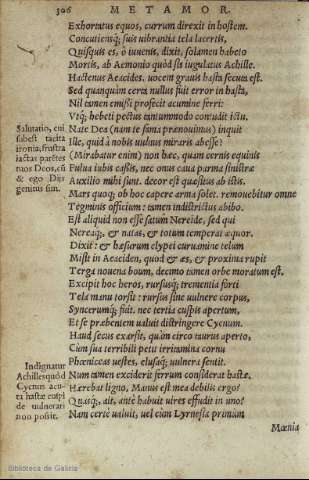 306 METAMOR.
Exhortatus equos, currum direxit in hostem.
Concutiensq; suis uibrantia tela lacertis,
Quisquis es, ô iuuenis, dixit, solamen habeto
Mortis, ab Aemonio quòd sis iugulatus Achille.
Hactenus Aeacides, uocem grauis hasta secuta est.
Sed quanquàm certa nullus fuit error in hasta,
Nil tamen emissi profecit acumine ferri:
Vtq; hebeti pectus tantummodo contudit ictu,
Salutatio, cui
subest tacita
ironia, frustra
iactas parẽtes
tuos Deos, cũ
& ego Dijs
genitus sim.
Nate Dea (nam te fama prænouimus) inquit
Ille, quid à nobis uulnus miraris abesse?
(Mirabatur enim) non hæc, quam cernis equinis
Fulua iubis cassis, nec onus caua parma sinistræ
Auxilio mihi sunt. decor est quæsitus ab istis.
Mars quoq; ob hoc capere arma solet. remouebitur omne
Tegminis officium: tamen indistrictus abibo.
Est aliquid non esse satum Nereide, sed qui
Nereaq;, & natas, & totum temperat æquor.
Dixit: & hæsurum clypei curuamine telum
Misit in Aeaciden, quod & æs, & proxima rupit
Terga nouena boum, decimo tamen orbe moratum est.
Excipit hoc heros, rursusq; trementia forti
Tela manu torsit: rursus sine uulnere corpus,
Syncerumq; fuit. nec tertia cuspis apertum,
Et se præbentem ualuit distringere Cycnum.
Haud secus exarsit, quàm circo taurus aperto,
Cùm sua terribili petit irritamina cornu
Phœniceas uestes, elusaq; uulnera sentit.
Indignatur
Achilles quòd
Cycnus acu-
ta hastæ cuspi
de uulnerari
non possit.
Num tamen exciderit ferrum considerat hastæ.
Hærebat ligno, Manus est mea debilis ergo?
Quasq;, ait, antè habuit uires effudit in uno?
Nam certè ualuit, uel cùm Lyrnesia primùm
Mœnia
Biblioteca de Galicia